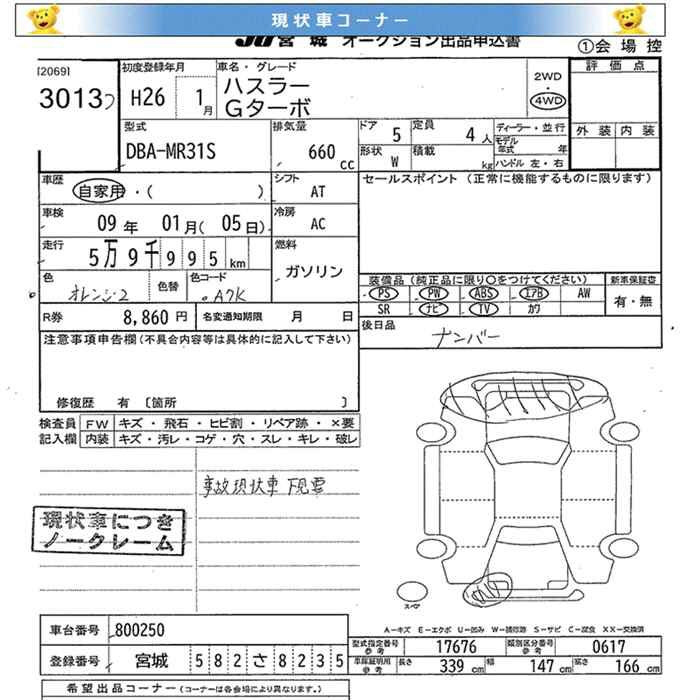 現状車コーナー
JU宮城 オークション出品申込書
①会場控
[2069]
3013
初度登録年月
H26 1月
車名・グレード
ハスラー
Gターボ
2WD
・
4WD
評価点
外装 内装
型式
DBA-MR31S
排気量
660 cc
ドア 5
定員 4人
形状 W
積載 kg
ディーラー・並行
モデル年式 年
ハンドル 左・右
車歴
自家用・( )
シフト
AT
セールスポイント (正常に機能するものに限ります)
車検
09年 01月(05日)
冷房
AC
走行
5万9千995km
燃料
ガソリン
色
オレンジ2
色替
色コード
A7K
装備品(純正品に限り○をつけてください)
新車保証書
PS PW ABS エアB AW
SR ナビ TV カワ
有・無
R券 8,860円
名変通知期限 月 日
後日品
ナンバー
注意事項申告欄(不具合内容等は具体的に記入して下さい)
修復歴 有 〔箇所 〕
検査員記入欄
FW キズ・飛石・ヒビ割・リペア跡・×要
内装 キズ・汚レ・コゲ・穴・スレ・キレ・破レ
事故現状車 下見要
現状車につき
ノークレーム
スペア
A−キズ E−エクボ U−凹み W−補修跡 S−サビ C−腐食 XX−交換済
車台番号 800250
登録番号 宮城 582さ8235
型式指定番号 17676
類別区分番号 0617
車庫証明用
長さ 339cm 幅 147cm 高さ 166cm
希望出品コーナー(コーナーは各会場により異なります。)